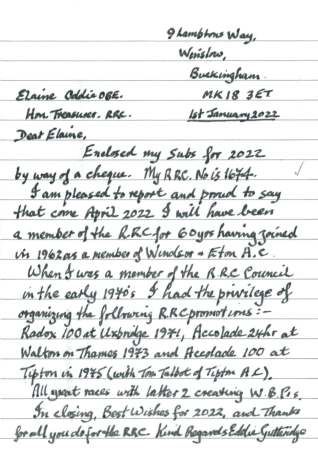 9 Lamptons Way,
Winslow,
Buckingham.
Elaine Oddie OBE. MK18 3ET
Hon. Treasurer. RRC. 1st January 2022
Dear Elaine,
Enclosed my Subs for 2022
by way of a cheque. My RRC. No is 1674.
I am pleased to report and proud to say
that come April 2022 I will have been
a member of the RRC for 60yrs having joined
in 1962 as a member of Windsor + Eton A.C.
When I was a member of the RRC Council
in the early 1970's I had the privilege of
organizing the following RRC promotions :-
Radox 100 at Uxbridge 1971, Accolade 24hr at
Walton on Thames 1973 and Accolade 100 at
Tipton in 1975 (with Tom Talbot of Tipton A.C).
All great races with latter 2 creating W.B.P's.
In closing, Best Wishes for 2022, and Thanks
for all you do for the RRC Kind Regards Eddie Gutteridge